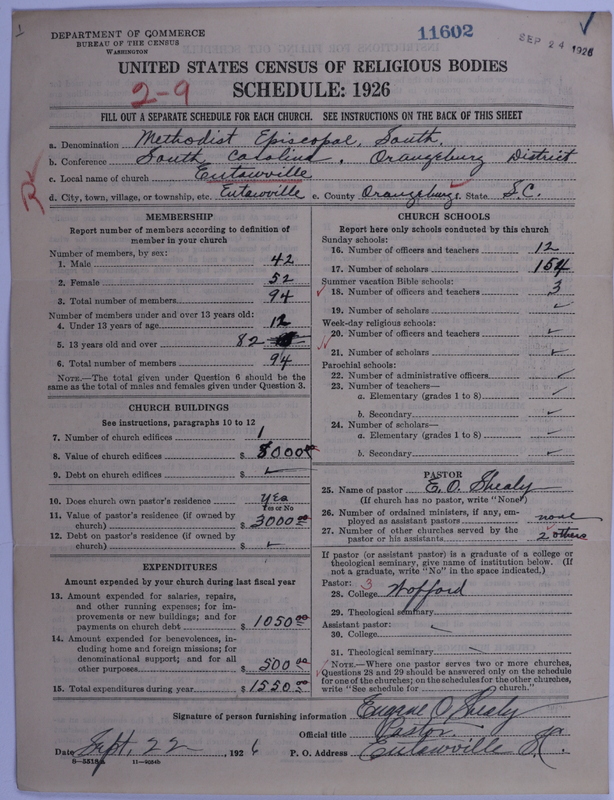 1
DEPARTMENT OF COMMERCE
BUREAU OF THE CENSUS
WASHINGTON
11602
SEP 24 1926
UNITED STATES CENSUS OF RELIGIOUS BODIES
2-9
SCHEDULE: 1926
FILL OUT A SEPARATE SCHEDULE FOR EACH CHURCH. SEE INSTRUCTIONS ON THE BACK OF THIS SHEET
a. Denomination Methodist Episcopal, South.
b. Conference South Carolina. Orangeburg District
c. Local name of church Eutawville
d. City, town, village, or township, etc. Eutawville e. County Orangeburg f. State S.C.
MEMBERSHIP
Report number of members according to definition of
member in your church
Number of members, by sex:
1. Male 42
2. Female 52
3. Total number of members 94
Number of members under and over 13 years old:
4. Under 13 years of age 12
5. 13 years old and over 82
6. Total number of members 94
NOTE.—The total given under Question 6 should be the
same as the total of males and females given under Question 3.
CHURCH BUILDINGS
See instructions, paragraphs 10 to 12
7. Number of church edifices 1
8. Value of church edifices $ 8000
9. Debt on church edifices $ ✓
10. Does church own pastor's residence yes
Yes or No
11. Value of pastor's residence (if owned by
church) $ 3000 00
12. Debt on pastor's residence (if owned by
church) $ ✓
EXPENDITURES
Amount expended by your church during last fiscal year
13. Amount expended for salaries, repairs,
and other running expenses; for im-
provements or new buildings; and for
payments on church debt $ 1050 00
14. Amount expended for benevolences, in-
cluding home and foreign missions; for
denominational support; and for all
other purposes $ 500 00
15. Total expenditures during year $ 1550 00
CHURCH SCHOOLS
Report here only schools conducted by this church
Sunday schools:
16. Number of officers and teachers 12
17. Number of scholars 154
Summer vacation Bible schools:
18. Number of officers and teachers 3
19. Number of scholars ✓
Week-day religious schools:
20. Number of officers and teachers ✓
21. Number of scholars ✓
Parochial schools:
22. Number of administrative officers ✓
23. Number of teachers—
a. Elementary (grades 1 to 8) ✓
b. Secondary ✓
24. Number of scholars—
a. Elementary (grades 1 to 8) ✓
b. Secondary ✓
PASTOR
25. Name of pastor E. O. Shealy
(If church has no pastor, write "None")
26. Number of ordained ministers, if any, em-
ployed as assistant pastors none
27. Number of other churches served by the
pastor or his assistants 2 others
If pastor (or assistant pastor) is a graduate of a college or
theological seminary, give name of institution below. (If
not a graduate, write "No" in the space indicated.)
Pastor: 3
28. College Wofford
29. Theological seminary
Assistant pastor:
30. College
31. Theological seminary
NOTE.—Where one pastor serves two or more churches,
Questions 28 and 29 should be answered only on the schedule
for one of the churches; on the schedules for the other churches,
write "See schedule for church."
Signature of person furnishing information Eugene O Shealy
Official title Pastor
Date Sept. 22 1926 P. O. Address Eutawville S.C.
8—5518a 11—9034b